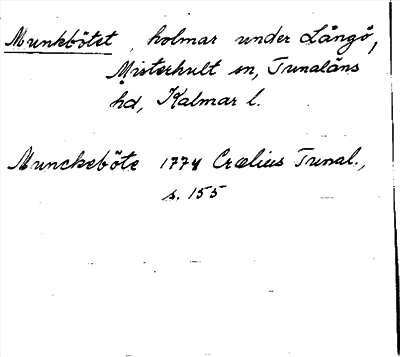 Munkbötet, holmar under Långö,
Misterhult sn, Tunaläns
hd, Kalmar l.
Munckeböte 1774 Crælius Tunal.,
s. 155